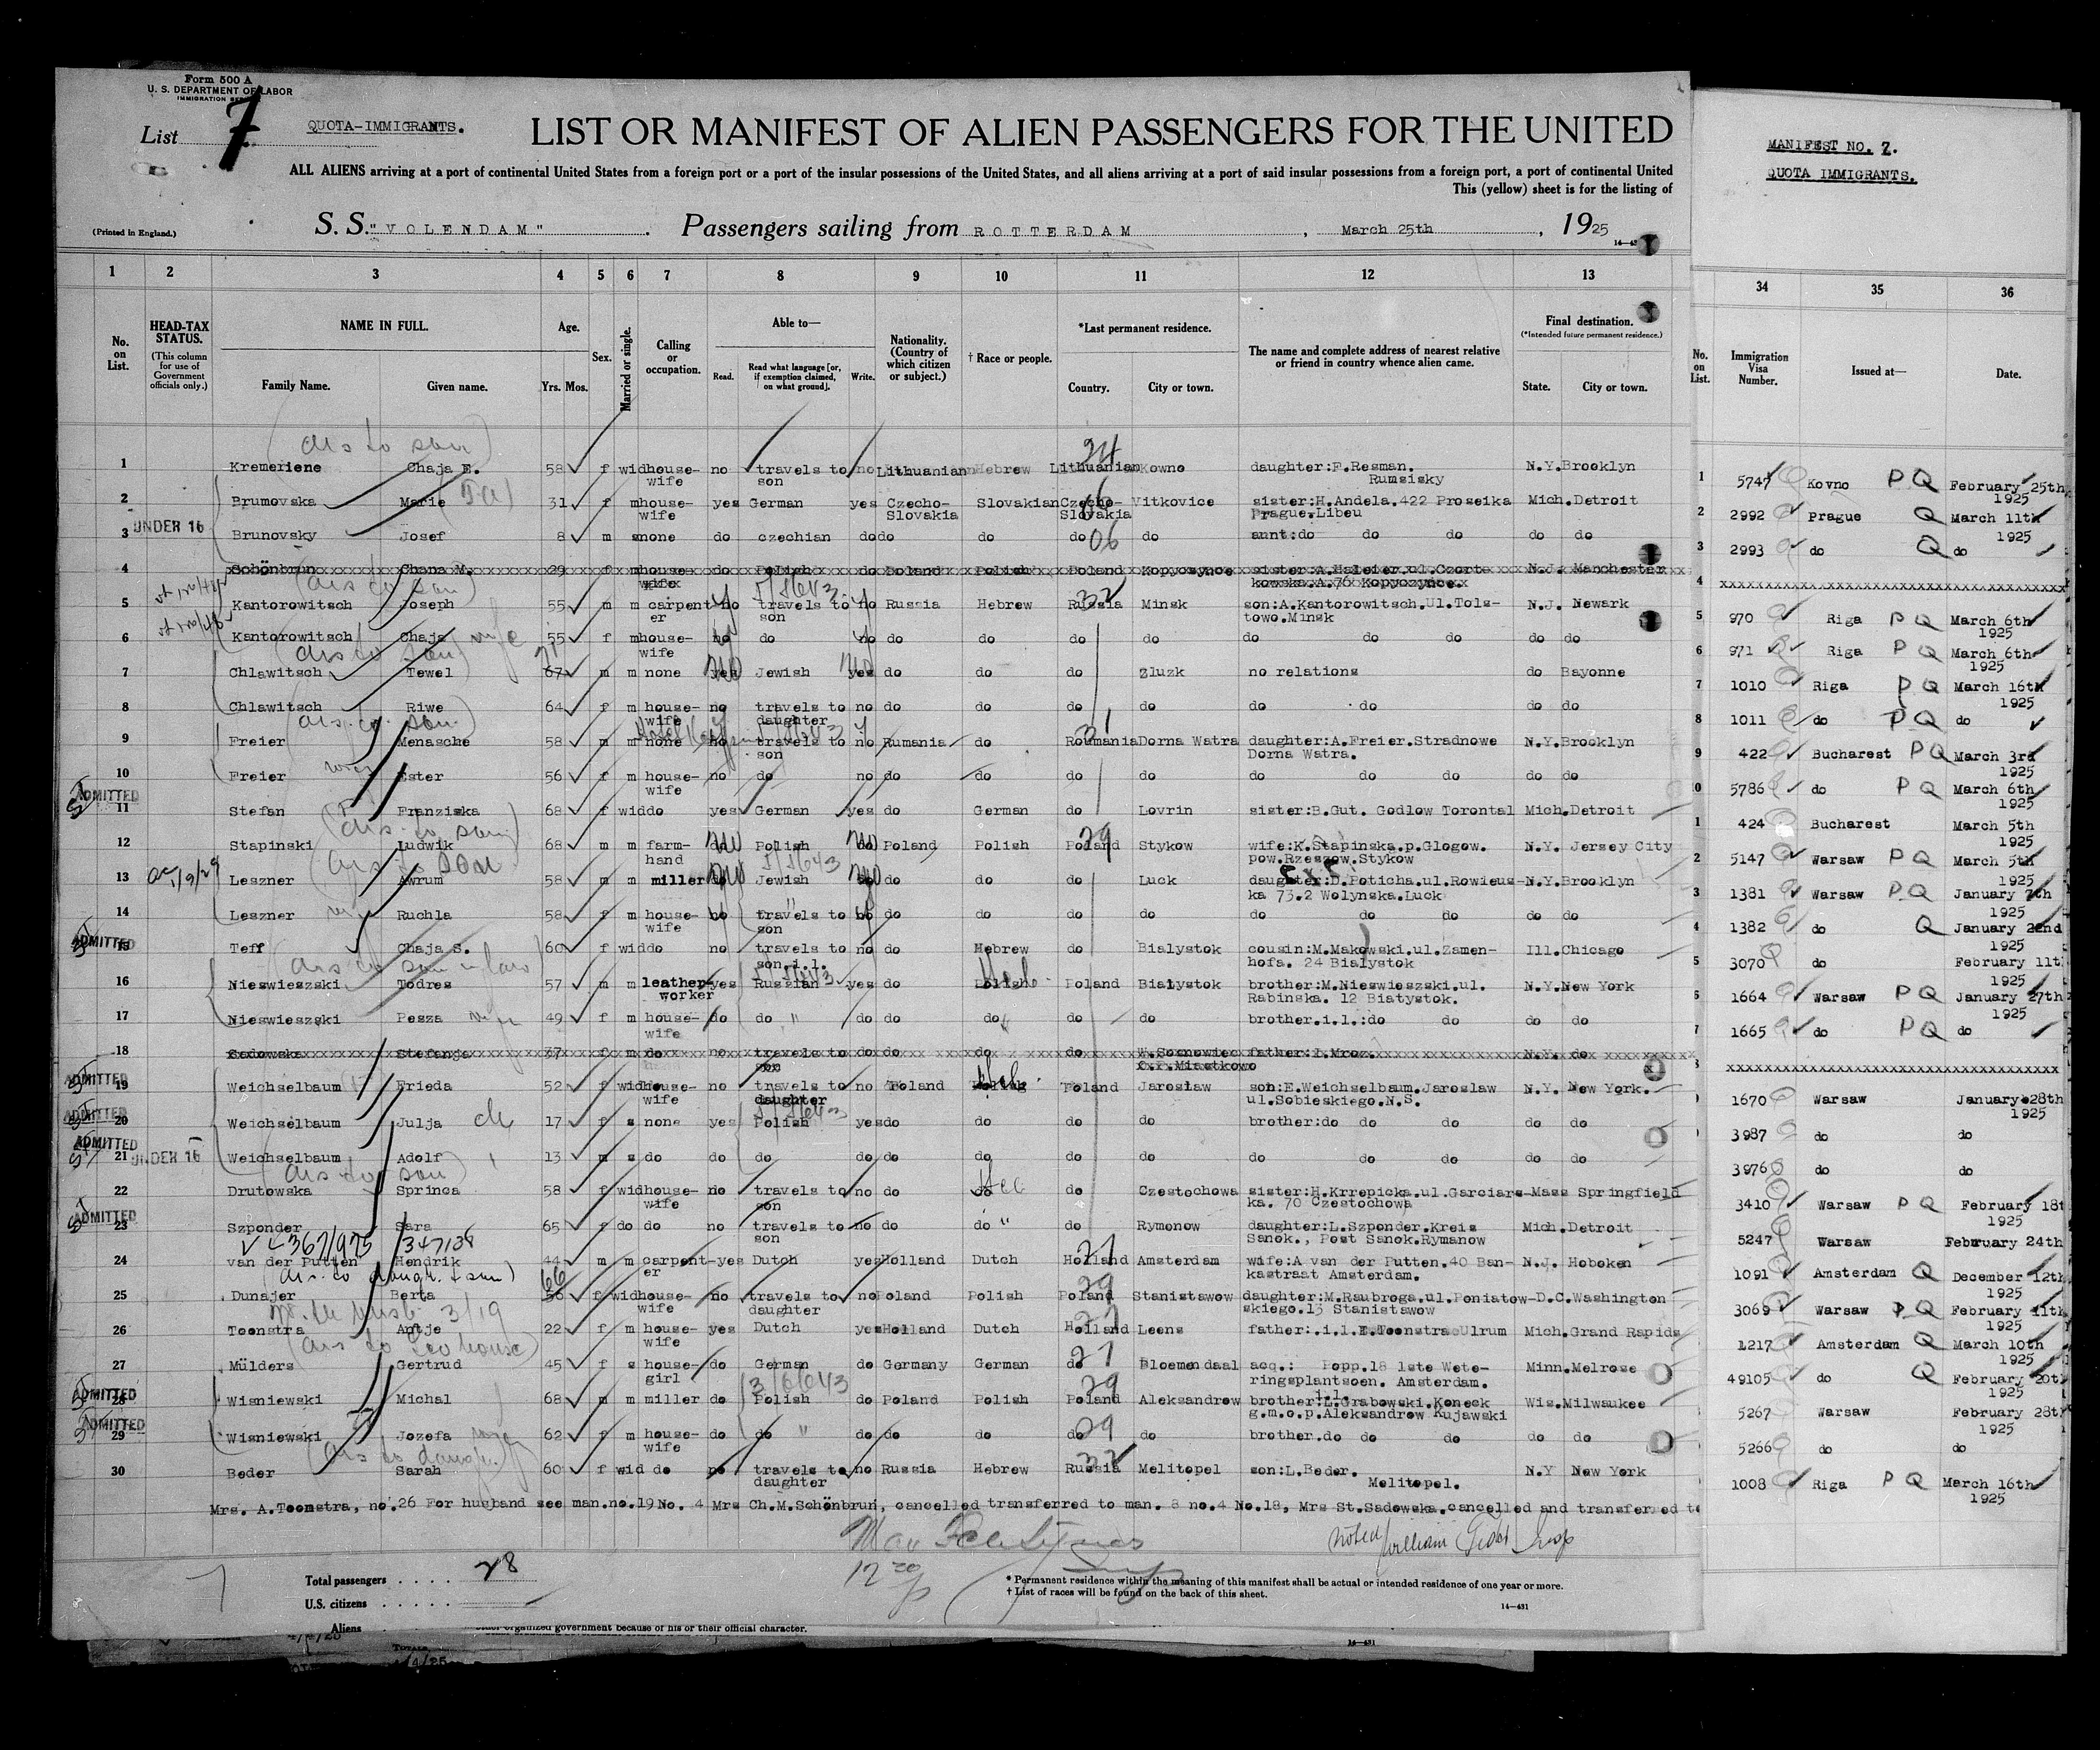 Form 500 A
U. S. DEPARTMENT OF LABOR
List 7
QUOTA-IMMIGRANTS.
LIST OR MANIFEST OF ALIEN PASSENGERS FOR THE UNITED
ALL ALIENS arriving at a port of continental United States from a foreign port or a port of the insular possessions of the United States, and all aliens arriving at a port of said insular possessions from a foreign port, a port of continental United
This (yellow) sheet is for the listing of
(Printed in England.)
S. S. "VOLENDAM". Passengers sailing from ROTTERDAM, March 25th, 1925
MANIFEST NO. 7.
QUOTA IMMIGRANTS.
1 2 3 4 5 6 7 8 9 10 11 12 13 34 35 36
No. on List. HEAD-TAX STATUS. (This column for use of Government officials only.) NAME IN FULL. Family Name. Given name. Age. Yrs. Mos. Sex. Married or single. Calling or occupation. Able to— Read. Read what language [or, if exemption claimed, on what ground]. Write. Nationality. (Country of which citizen or subject.) † Race or people. *Last permanent residence. Country. City or town. The name and complete address of nearest relative or friend in country whence alien came. Final destination. (*Intended future permanent residence.) State. City or town. No. on List. Immigration Visa Number. Issued at— Date.
1 Kremeriene Chaja E. 58 f wid house-wife no travels to son no Lithuanian Hebrew Lithuanian Kowno daughter:F.Resman. Rumsisky N.Y. Brooklyn 1 5747 Kovno P Q February 25th 1925
2 Brumovska Marie 31 f m house-wife yes German yes Czecho-Slovakia Slovakian Czecho-Slovakia Vitkovice sister:H.Andela.422 Proseika Prague.Libeu Mich. Detroit 2 2992 Prague Q March 11th 1925
UNDER 16
3 Brunovsky Josef 8 m s none do czechian do do do do do aunt:do do do do do 3 2993 do Q do
4 Schönbrun Chana M. 29 f m house-wife do Polish do Poland Polish Poland Kopyczynce N.J. Manchester 4 xxxxxx
5 Kantorowitsch Joseph 55 m m carpenter no travels to son no Russia Hebrew Russia Minsk son:A.Kantorowitsch.Ul.Tolstowo.Minsk N.J. Newark 5 970 Riga P Q March 6th 1925
6 Kantorowitsch Chaja wife 55 f m house-wife no do no do do do do do do do do do 6 971 Riga P Q March 6th 1925
7 Chlawitsch Tewel 67 m m none yes Jewish yes do do do Zluzk no relations do Bayonne 7 1010 Riga P Q March 16th 1925
8 Chlawitsch Riwe 64 f m house-wife no travels to daughter no do do do do do do do do do 8 1011 do P Q do
9 Freier Menasche 58 m m none no travels to son no Rumania do Roumania Dorna Watra daughter:A.Freier.Stradnowe Dorna Watra. N.Y. Brooklyn 9 422 Bucharest P Q March 3rd 1925
10 Freier Ester 56 f m house-wife no do no do do do do do do do do do 5786 do P Q March 6th 1925
ADMITTED
11 Stefan Franziska 68 f wid do yes German yes do German do Lovrin sister:B.Gut. Godlow Torontal Mich. Detroit 424 Bucharest March 5th 1925
12 Stapinski Ludwik 68 m m farm-hand do Polish do Poland Polish Poland Stykow wife:K.Stapinska.p.Glogow. pow.Rzeszow.Stykow N.Y. Jersey City 5147 Warsaw P Q March 5th 1925
13 Leszner Awrum 58 m m miller do Jewish do do do do Luck daughter:D.Poticha.ul.Rowieuska 73.2 Wolynska.Luck N.Y. Brooklyn 1381 Warsaw P Q January 7th 1925
14 Leszner Ruchla 58 f m house-wife no travels to son no do do do do do do do do do 1382 do Q January 22nd 1925
ADMITTED
15 Teff Chaja S. 60 f wid do no travels to son.i.l. no do Hebrew do Bialystok cousin:M.Makowski.ul.Zamenhofa. 24 Bialystok Ill. Chicago 3070 do February 11th 1925
16 Nieswieszski Todres 57 m m leather-worker yes Russian yes do Polish Poland Bialystok brother:M.Nieswieszski.ul. Rabinska. 12 Biatystok. N.Y. New York 1664 Warsaw P Q January 27th 1925
17 Nieswieszski Pesza 49 f m house-wife do do do do do do do brother.i.l.:do do do do 1665 do P Q do
18 Sadowska Stefanja 37 f m do no travels to son do do do do father:I.Mroz. N.Y. do xxxxxx
ADMITTED
19 Weichselbaum Frieda 52 f wid house-wife no travels to daughter no Poland Poland Jaroslaw son:E.Weichselbaum.Jaroslaw ul.Sobieskiego.N.S. N.Y. New York. 1670 Warsaw January 28th 1925
ADMITTED
20 Weichselbaum Julja 17 f s none yes Polish yes do do do do brother:do do do do do 3987 do do
ADMITTED UNDER 16
21 Weichselbaum Adolf 13 m s do do do do do do do do do do do do do 3976 do do
22 Drutowska Sprinca 58 f wid house-wife no travels to son no do do do Czestochowa sister:H.Krrepicka.ul.Garciarska. 70 Czestochowa Mass Springfield 3410 Warsaw P Q February 18th 1925
ADMITTED
23 Szponder Sara 65 f do do no travels to son no do do do Rymonow daughter:L.Szponder.Kreis Sanok., Post Sanok.Rymanow Mich. Detroit 5247 Warsaw February 24th 1925
24 van der Putten Hendrik 44 m m carpenter yes Dutch yes Holland Dutch Holland Amsterdam wife:A van der Putten.40 Bankastraat Amsterdam. N.J. Hoboken 1091 Amsterdam Q December 12th 1925
25 Dunajer Berta 56 66 f wid house-wife no travels to daughter no Poland Polish Poland Stanistawow daughter:M.Raubroga.ul.Poniatowskiego.13 Stanistawow D.C. Washington 3069 Warsaw P Q February 11th 1925
26 Toonstra Antje 22 f m house-wife yes Dutch yes Holland Dutch Holland Leens father:.i.l.E.Toonstra Ulrum Mich. Grand Rapids 1217 Amsterdam Q March 10th 1925
27 Mülders Gertrud 45 f s house-girl do German do Germany German do Bloemendaal acq.: Popp.18 1ste Weteringsplantsoen. Amsterdam. Minn. Melrose 49105 do Q February 20th 1925
ADMITTED
28 Wisniewski Michal 68 m m miller do Polish do Poland Polish Poland Aleksandrow brother:i.l. L.Grabowski.Koneck g.m.o.p.Aleksandrow Kujawski Wis. Milwaukee 5267 Warsaw February 28th 1925
ADMITTED
29 Wisniewski Jozefa 62 f m house-wife do do do do do do do brother.do do do do do 5266 do do
30 Beder Sarah 60 f wid do no travels to daughter no Russia Hebrew Russia Melitopel son:L.Beder. Melitopel. N.Y New York 1008 Riga P Q March 16th 1925
Mrs. A.Toonstra, no.26 For husband see man.no.19 No. 4 Mrs Ch.M.Schönbrun, cancelled transferred to man. 8 no.4 No.18, Mrs St.Sadowska.cancelled and transferred to
Total passengers . . . . . 28
U.S. citizens . . . . . .
Aliens
* Permanent residence within the meaning of this manifest shall be actual or intended residence of one year or more.
† List of races will be found on the back of this sheet.
14—431
organized government because of his or their official character.
14—431